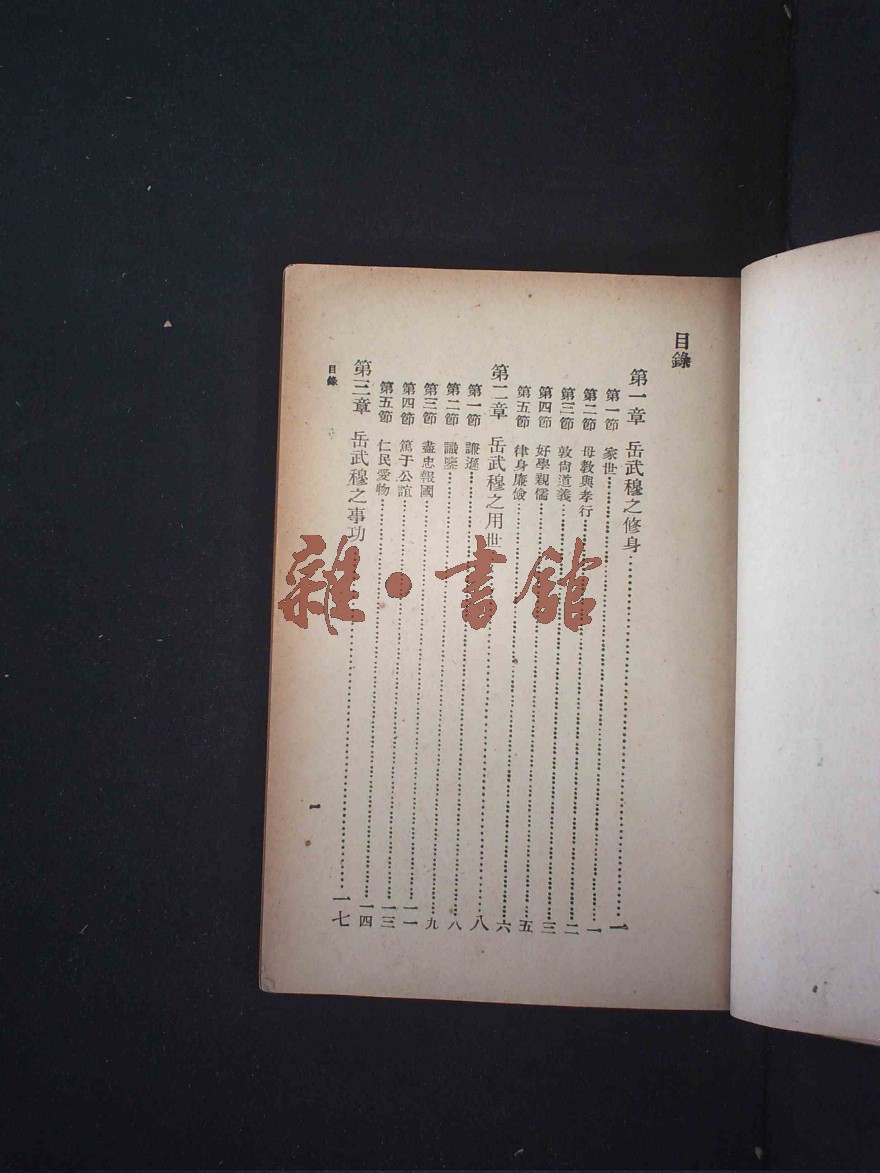 目錄
第一章 岳武穆之修身……一
第一節 家世……一
第二節 母教與孝行……二
第三節 敦尙道義……三
第四節 好學親儒……五
第五節 律身廉儉……六
第二章 岳武穆之用世……八
第一節 謙遜……八
第二節 識鑒……九
第三節 盡忠報國……一一
第四節 篤于公誼……一三
第五節 仁民愛物……一四
第三章 岳武穆之事功……一七
目錄
一
雜·書館